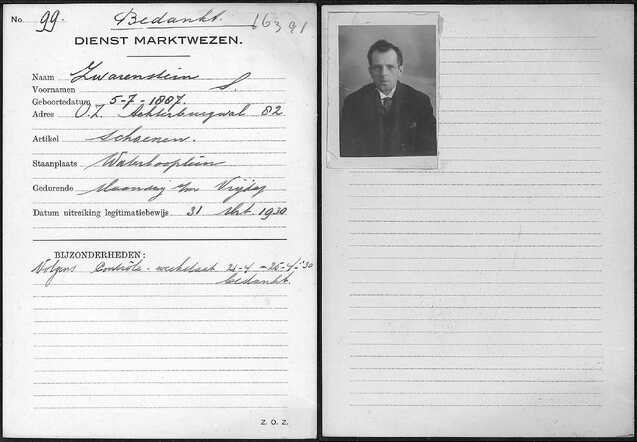 No. 99. Bedankt. 16391
DIENST MARKTWEZEN.
Naam Zwarenstein
Voornamen S.
Geboortedatum 5-7-1887.
Adres O.Z. Achterburgwal 82
Artikel schoenen.
Staanplaats Waterlooplein
Gedurende Maandag t/m Vrijdag
Datum uitreiking legitimatiebewijs 31 Mrt. 1930
BIJZONDERHEDEN:
Volgens Contrôle-weekstaat 21-4 - 25-4-'30
bedankt.
Z. O. Z.